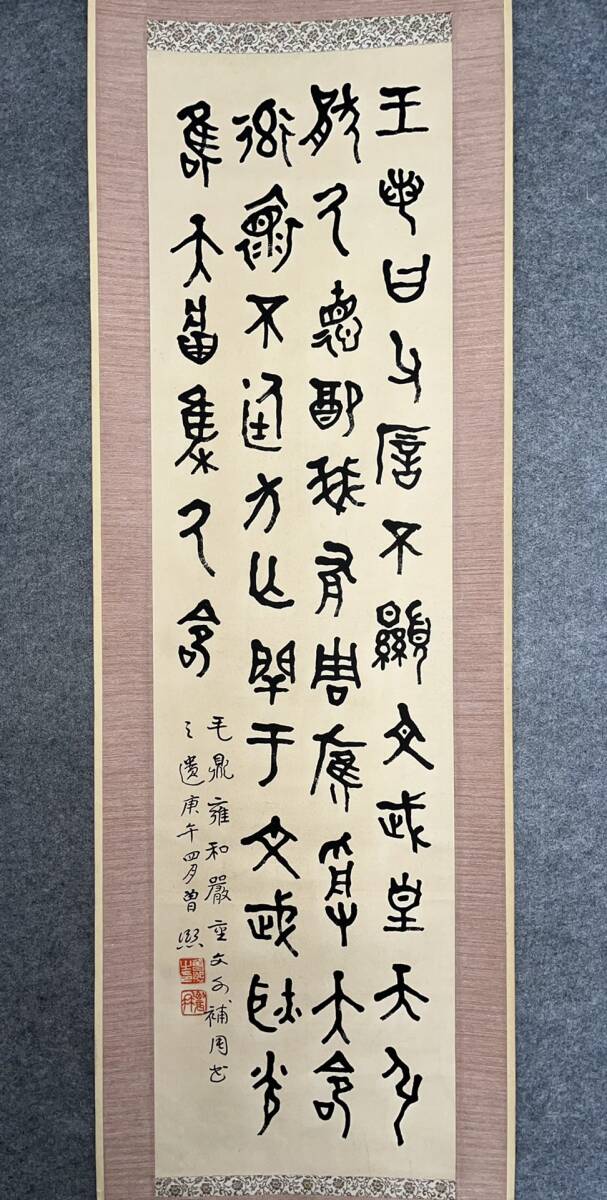 王若曰父不顯文武皇天引
猒氒德配我有周膺受大命
率懷不廷方亡閈于文武耿光
唯天將集氒命
毛鼎雍和嚴重文可補周書
之遺庚午四月曾熙